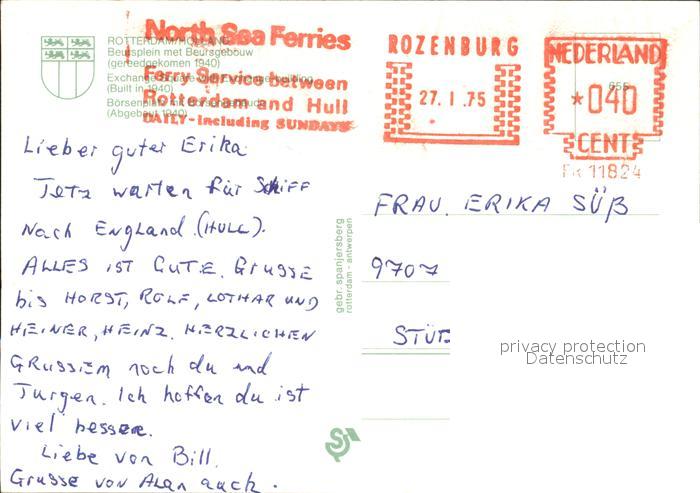 ROTTERDAM/HOLLAND
Beursplein met Beursgebouw
(gereedgekomen 1940)
Exchange
(Built in 1940)
Börsenplatz mit
(Abgebaut 1940)
North Sea Ferries
Ferry Service between
Rotterdam and Hull
DAILY-including SUNDAYS
ROZENBURG
27.I.75
NEDERLAND
655
*040
CENT
FR 11824
Lieber guter Erika
Jetz warten für Schiff
Nach England.(HULL).
ALLES ist GUTE. Grusse
bis HORST, ROLF, LOTHAR UND
HEINER, HEINZ. HERZLICHEN
GRUSSIEM noch du und
Jurgen. Ich hoffen du ist
viel besser.
Liebe von Bill.
Grusse von Alan auch.
gebr. spanjersberg
rotterdam - antwerpen
FRAU. ERIKA SÜß
9707
STÜT
privacy protection
Datenschutz